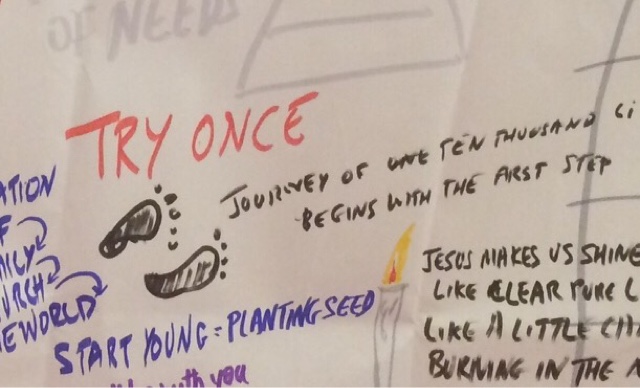 OF NEED
TRY ONCE
JOURNEY OF ONE TEN THOUSAND
BEGINS WITH THE FIRST STEP
ATION
F
URCH
EWORLD
START YOUNG = PLANTING SEED
with you
JESUS MAKES US SHINE
LIKE CLEAR PURE L
LIKE A LITTLE
BURNING IN THE